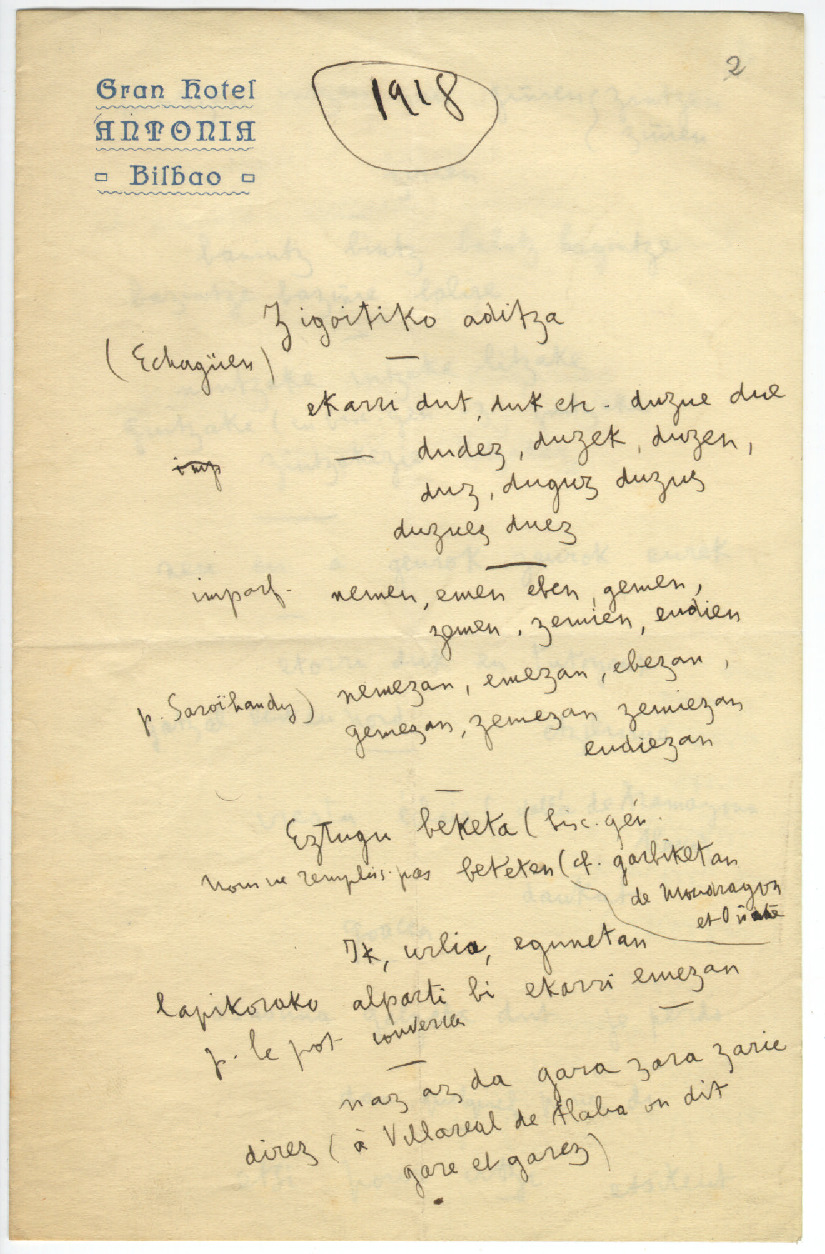 2
Gran Hotel
ANTONIA
Bilbao
1918
Zigoitiko aditza
(Echagüen)
ekarri dut, duk etc. duzue due
imp — dudez, duzek, duzen,
duz, duguz duzuz
duzuez duez
imparf. nemen, emen eben, gemen,
zemen, zemien, eudien
p. Saroïhandy) nemezan, emezan, ebezan,
gemezan, zemezan zemiezan
eudiezan
Eztugu beketa (bisc. gén.
nous ne remplis. pas beteten (cf. garbiketan
de Mondragon
et Oñate
Ik, urlia, egunetan
lapikorako alparti bi ekarri emezan
p. le pot
naz az da gara zara zarie
direz (à Villareal de Alaba on dit
gare et garez)